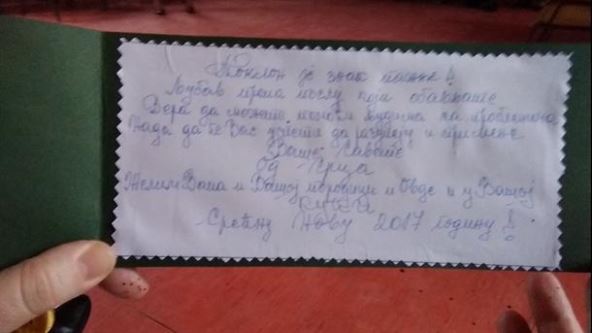 Поклон је знак пажње!
Љубав према послу који обављате
Вера да можете помоћи људима са проблемима
Нада да ће Вас успети да разумеју и примене
Ваше савете
Од Срца
Желим Вама и Вашој породици и Овде и у Вашој
Срећну Нову 2017 годину!